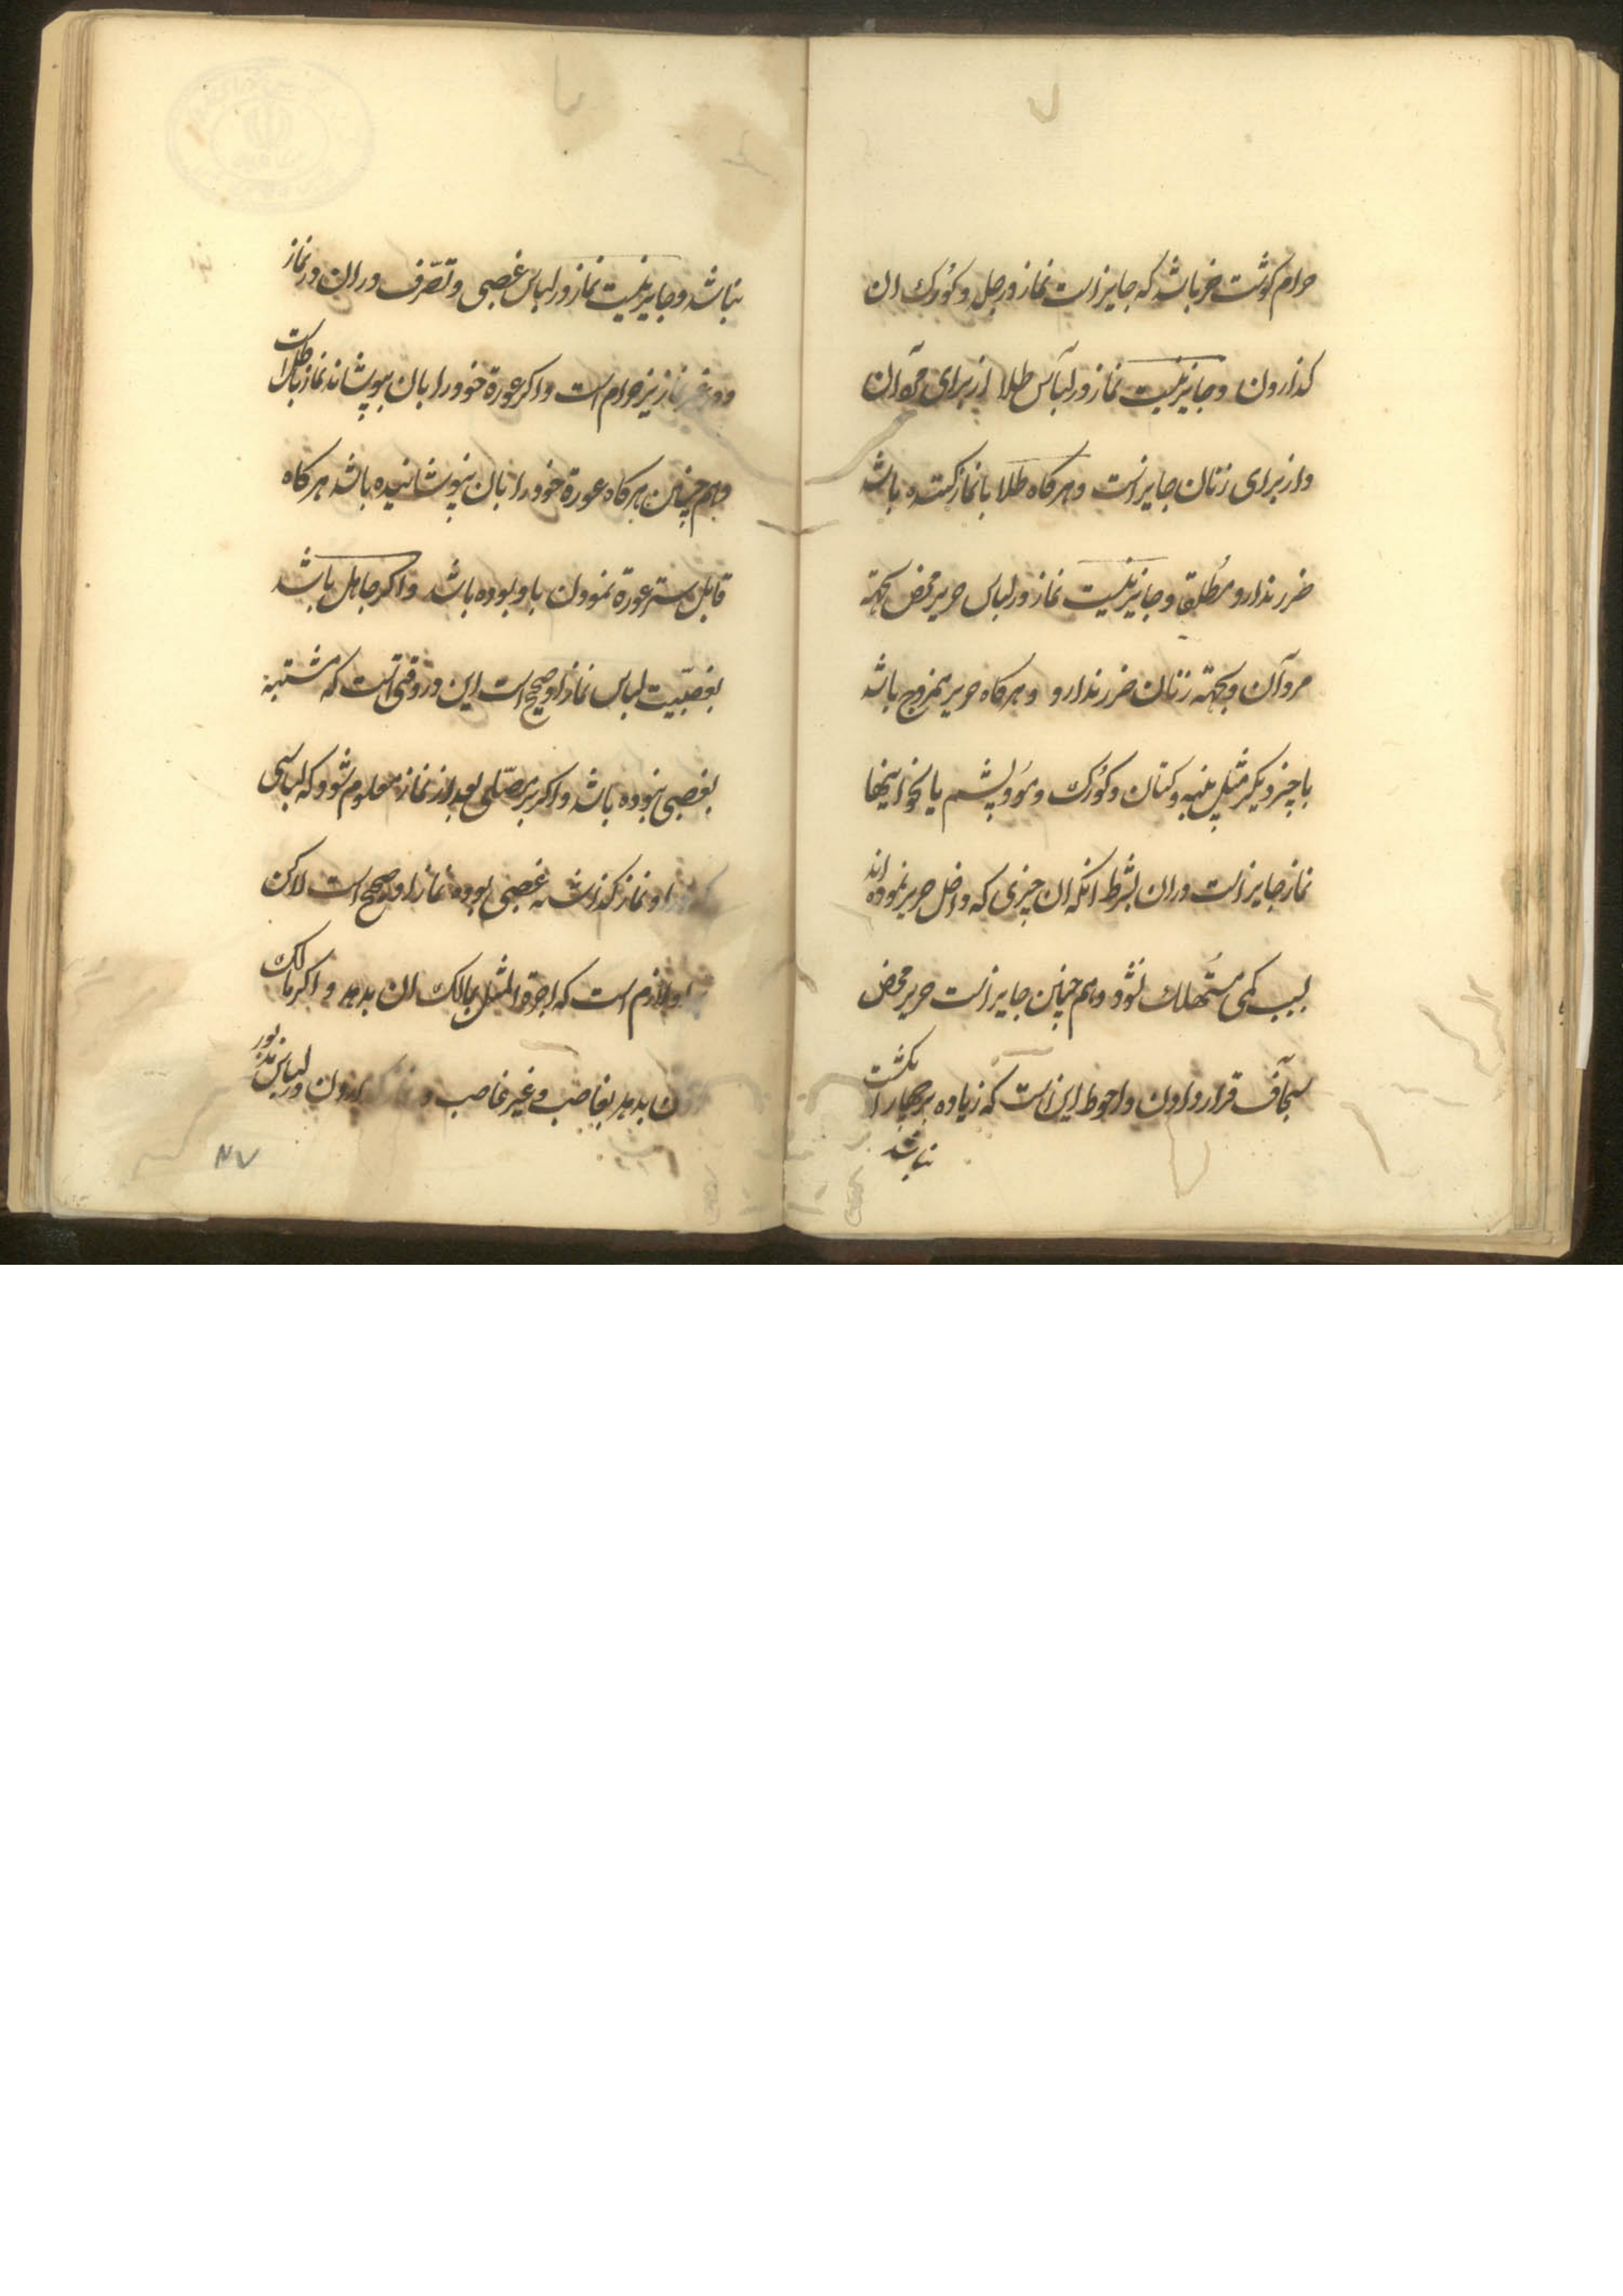 حرام کوشت خز باشد که جایز است نماز در جلد و کُورک ان
کذاردن و جایز نیست نماز در لباس طلا از برای مردان
و از برای زنان جایز است و هرکاه طلا با نماز کننده باشد
ضرر ندارد مُطلقا و جایز نیست نماز در لباس حریر محض بجهة
مردان و بجهة زنان ضرر ندارد و هرکاه حریر ممزوج باشد
با چیز دیکر مثل پنبه و کتان و کُورک و مُو و پشم یا نخو اینها
نماز جایز است در ان بشرط انکه ان چیزی که داخل حریر نموده اند
بسبب کمی مُستهلک نشود و هم چنین جایز است حریر محض
سجاف قرار دادن و احوط این است که زیاده بر چهار انکشت
نباشد
نباشد و جایز نیست نماز در لباس غصبی و تصّرف در ان در نماز
و در غیر نماز نیز حرام است و اکر عورة خود را بان بپوشاند نماز باطل است
و هم چنین هرکاه عورة خود را بان نپوشانیده باشد هرکاه
قابل ستر عورة نمودن با و بوده باشد و اکر جاهل باشد
بغصبّیت لباس نماز او صحیح است این در وقتی است که مشتبه
بغصبی نبوده باشد و اکر بر مصّلی بعد از نماز معلوم شود که لباسی
که در او نماز کذاشته غصبی بوده نماز او صحیح است لاکن
او لازم است که اجرة المثل بمالک ان بدهد و اکر مالک
بدهد بغاصب و غیر غاصب در لباس مذبور
۸۷